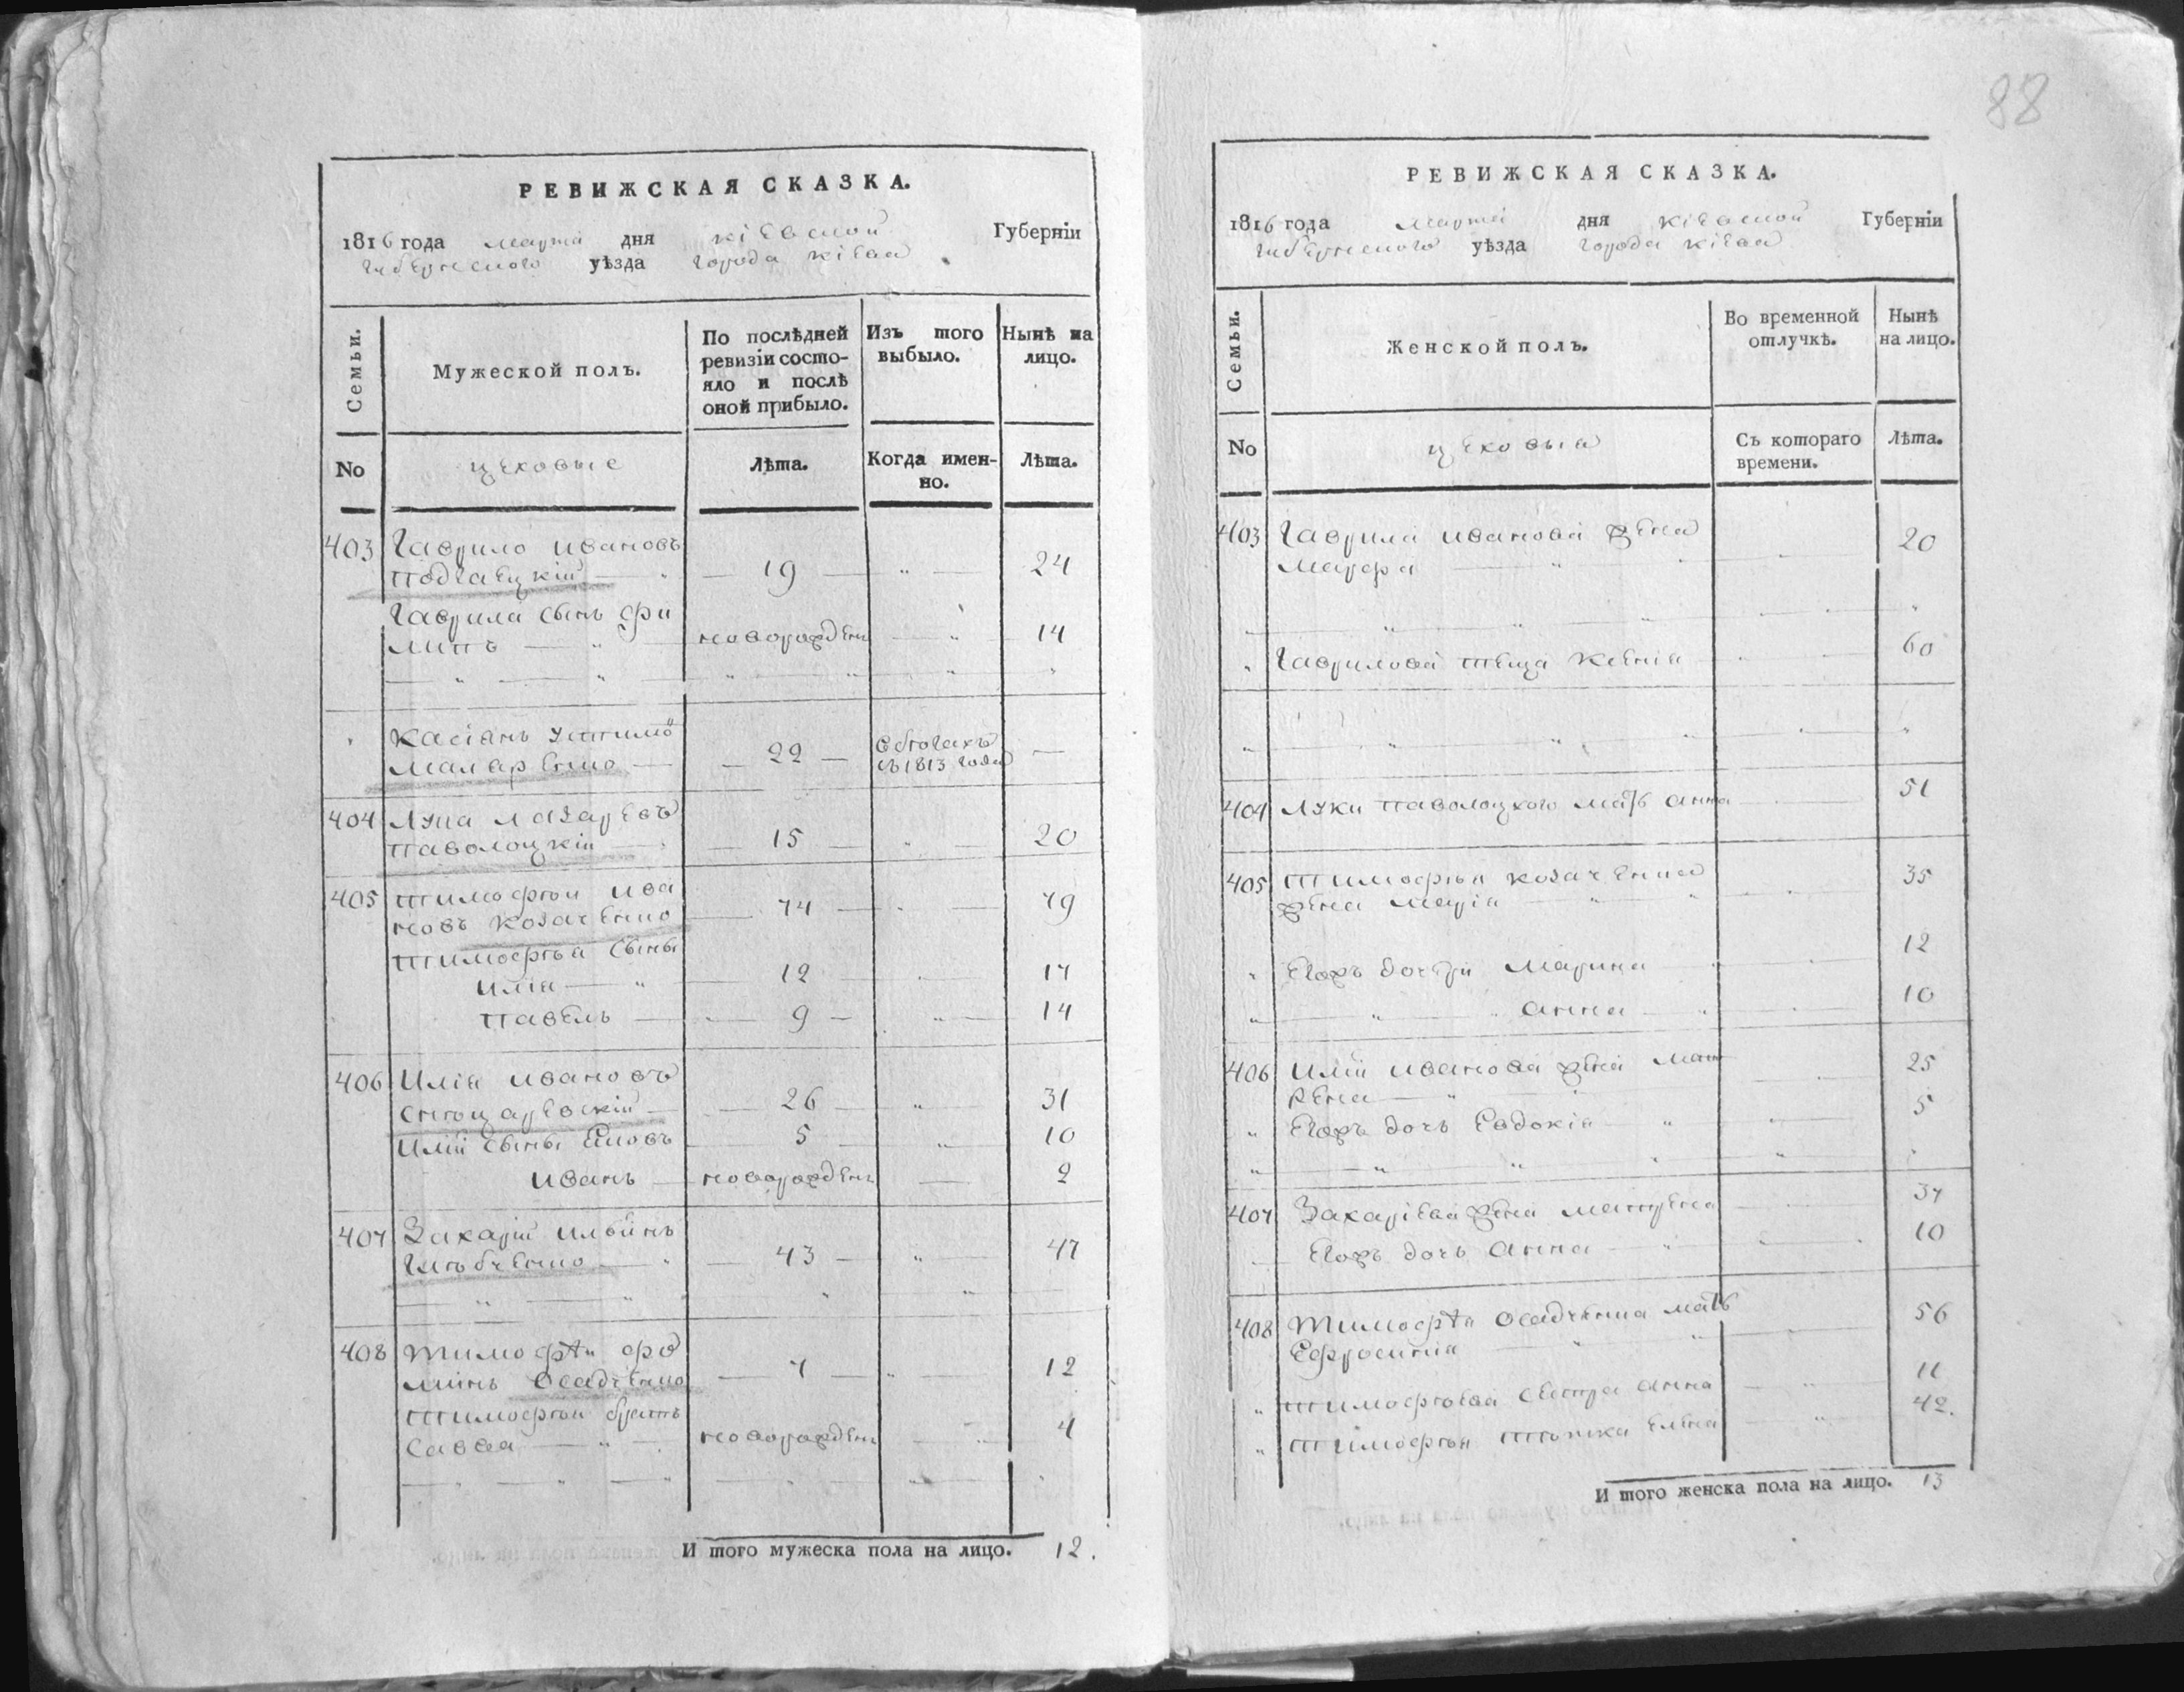 88
РЕВИЖСКАЯ СКАЗКА.
1816 года марта дня кіевской Губерніи
губернского уѣзда города кіева
Семьи.
Мужеской полъ.
По послѣдней ревизіи состояло и послѣ оной прибыло.
Изъ того выбыло.
Нынѣ на лицо.
No
цеховые
Лѣта.
Когда именно.
Лѣта.
403 Гаврило ивановъ
подгаецкій 19 24
Гаврила сынъ фи
липъ новорожденъ 14
касіанъ
22 в бѣгахъ
съ 1813 года
404 Лука лазаревъ
паволоцкій 15 20
405 тимофѣй ива
новъ козаченко 74 79
тимофѣя сыны
илія 12 17
павелъ 9 14
406 илія ивановъ
26 31
иліи сыны 5 10
иванъ новорожденъ 2
407 Захарій ильинъ
43 47
408 тимофѣй фо
минъ осадченко 7 12
тимофѣя братъ
савва новорожденъ 4
И того мужеска пола на лицо. 12.
РЕВИЖСКАЯ СКАЗКА.
1816 года марта дня кіевской Губерніи
губернского уѣзда города кіева
Семьи.
Женской полъ.
Во временной отлучкѣ.
Нынѣ на лицо.
No
цеховыя
Съ котораго времени.
Лѣта.
403 Гаврила иванова жена
мавра 20
Гаврилова теща ксенія 60
404 Луки паволоцкого мать анна 51
405 тимофѣя козаченка
жена марія 35
Егожъ дочери марина 12
анна 10
406 иліи иванова жена мат
рена 25
Егожъ дочь Евдокія 5
407 Захаріева жена матрена 37
Егожъ дочь анна 10
408 тимофѣя осадченка мать
Ефросинія 56
тимофѣева сестра анна 11
тимофѣя тіотка елена 42.
И того женска пола на лицо. 13